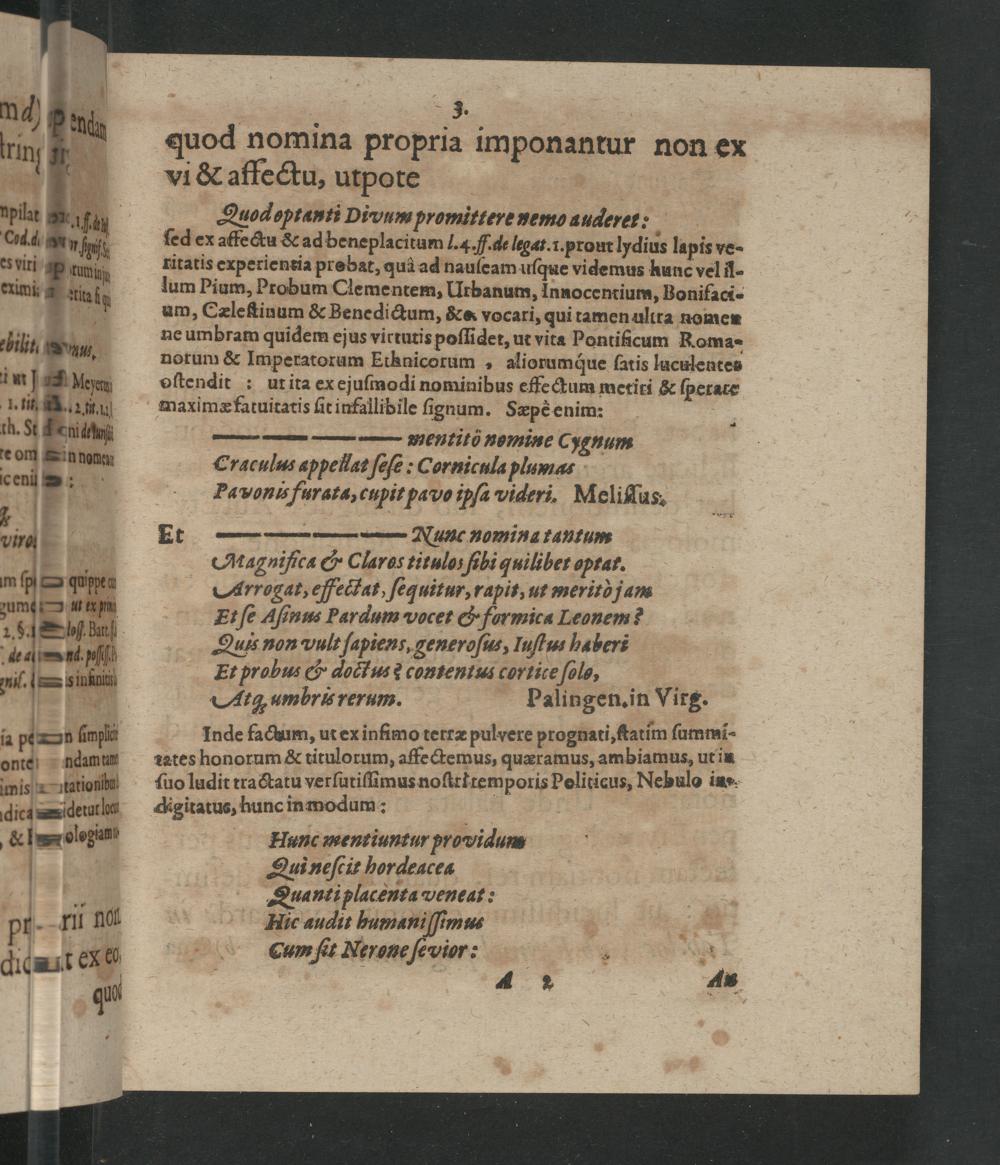 3.
quod nomina propria imponantur non ex
vi & affectu, utpote
Quod optanti Divum promittere nemo auderet:
sed ex affectu & ad beneplacitum l. 4. ff. de legat. 1. prout lydius lapis ve-
ritatis experientia probat, quâ ad nauseam usque videmus hunc vel il-
lum Pium, Probum Clementem, Urbanum, Innocentium, Bonifaci-
um, Cælestinum & Benedictum, &c. vocari, qui tamen ultra nomen
ne umbram quidem ejus virtutis possidet, ut vita Pontificum Roma-
norum & Imperatorum Ethnicorum, aliorumq́ue satis luculenter
ostendit : ut ita ex ejusmodi nominibus effectum metiri & sperare
maximæ fatuitatis sit infallibile signum. Sæpè enim:
— — — — mentitô nomine Cygnum
Craculus appellat sese: Cornicula plumas
Pavonis furata, cupit pavo ipsa videri. Melissus.
Et — — — — Nunc nomina tantum
Magnifica & Claros titulos sibi quilibet optat.
Arrogat, effectat, sequitur, rapit, ut meritò jam
Et se Asinus Pardum vocet & formica Leonem?
Quis non vult sapiens, generosus, Iustus haberi
Et probus & doctus? contentus cortice solo,
Atq; umbris rerum. Palingen. in Virg.
Inde factum, ut ex infimo terræ pulvere prognati, statim summi-
tates honorum & titulorum, affectemus, quæramus, ambiamus, ut in
suo ludit tractatu versutissimus nostri temporis Politicus, Nebulo in-
digitatus, hunc in modum:
Hunc mentiuntur providum
Qui nescit hordeacea
Quanti placènta veneat:
Hic audit humanissimus
Cum sit Nerone sevior:
A 2 An